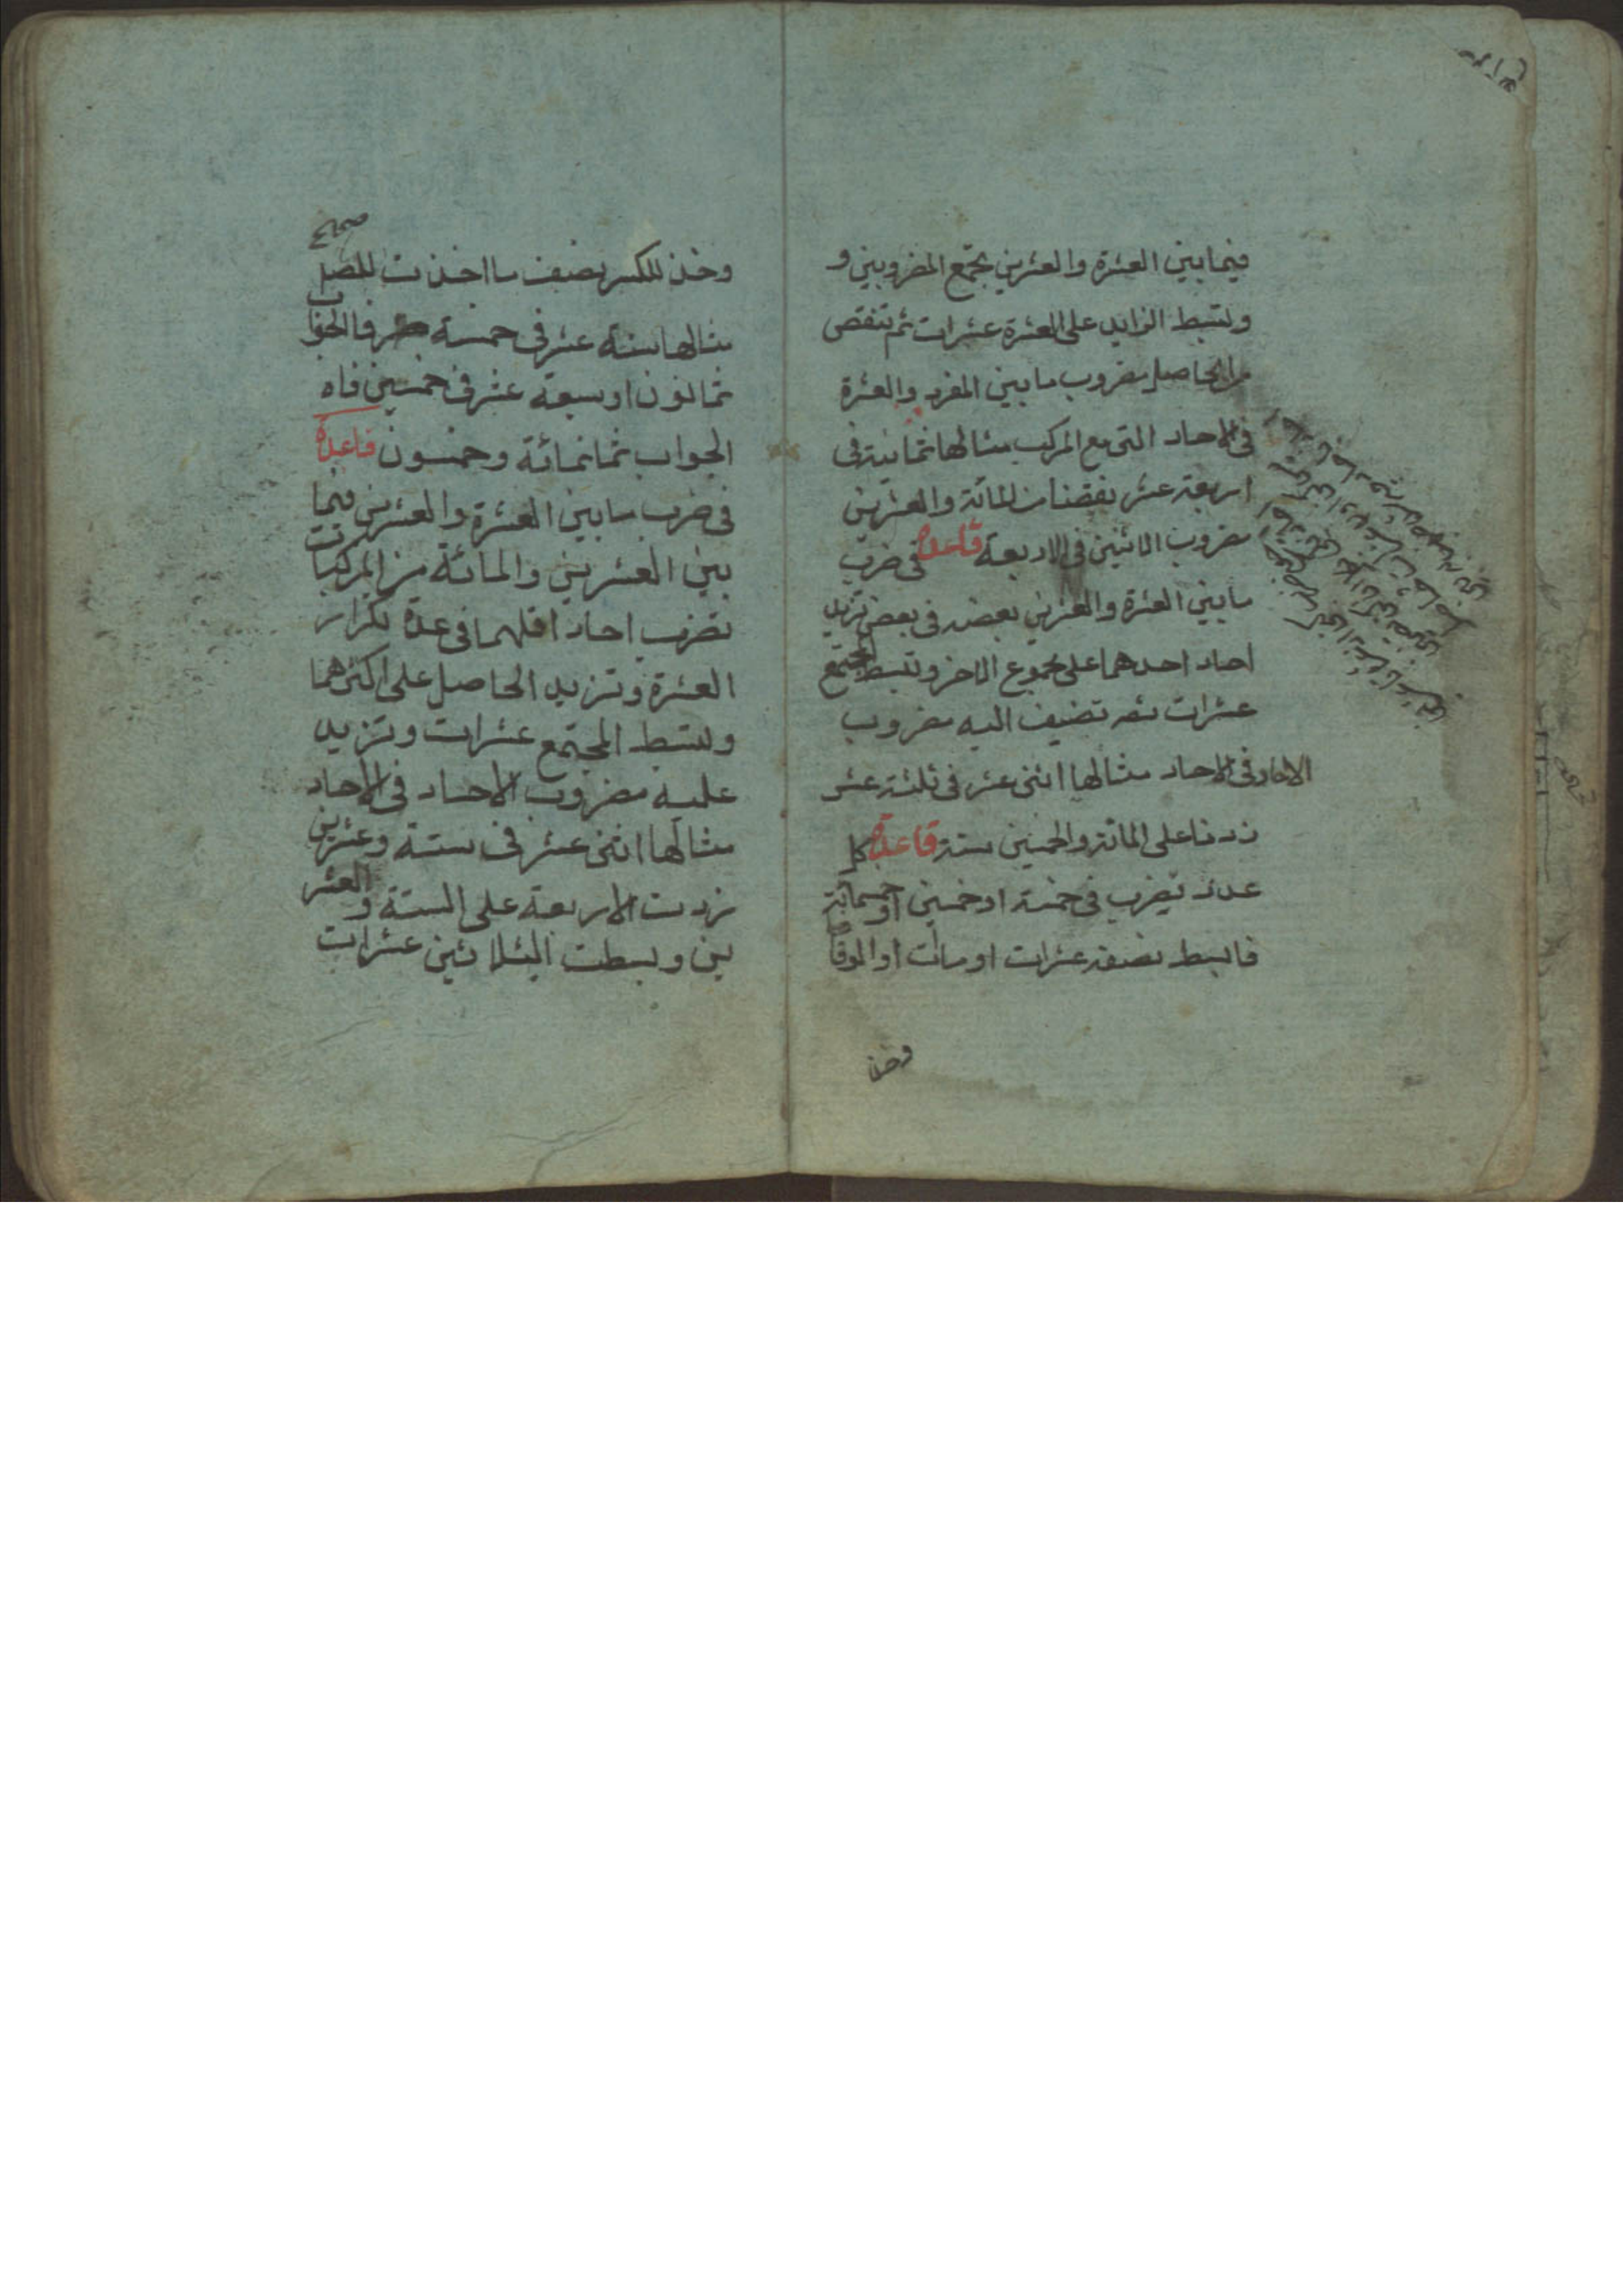 فيما بين العشرة والعشرين تجمع المضروبين و
وتبسط الزايد على العشرة عشرات ثم تنقص
من الحاصل مضروب ما بين المفرد والعشرة
في الاحاد التي مع المركب مثالها ثمانية في
اربعة عشر نقصنا من المائة والعشرين
مضروب الاثنين في الاربعة قاعدة في ضرب
ما بين العشرة والعشرين بعضه في بعض تزيد
احاد احدهما على مجموع الاخر وتبسط المجتمع
عشرات ثم تضيف اليه مضروب
الاحاد في الاحاد مثالها اثنى عشر في ثلثة عشر
زدنا على المائة والخمسين ستة قاعدة كل
عدد يضرب في خمسة او خمسين او خمسمائة
فابسط نصفه عشرات او مات او الوفا
وخذ
وخذ للكسر نصف ما اخذت للصحيح
مثالها ستة عشر في خمسة فالجواب
ثمانون او سبعة عشر في خمسين فاه
الجواب ثمانمائة وخمسون قاعدة
في ضرب ما بين العشرة والعشرين فيما
بين العشرين والمائة من المركبات
تضرب احاد اقلهما في عدة تكرار
العشرة وتزيد الحاصل على اكثرهما
وتبسط المجتمع عشرات وتزيد
عليه مضروب الاحاد في الاحاد
مثالها اثنى عشر في ستة وعشرين
زدت الاربعة على الستة والعشر
ين وبسطت الثلاثين عشرات